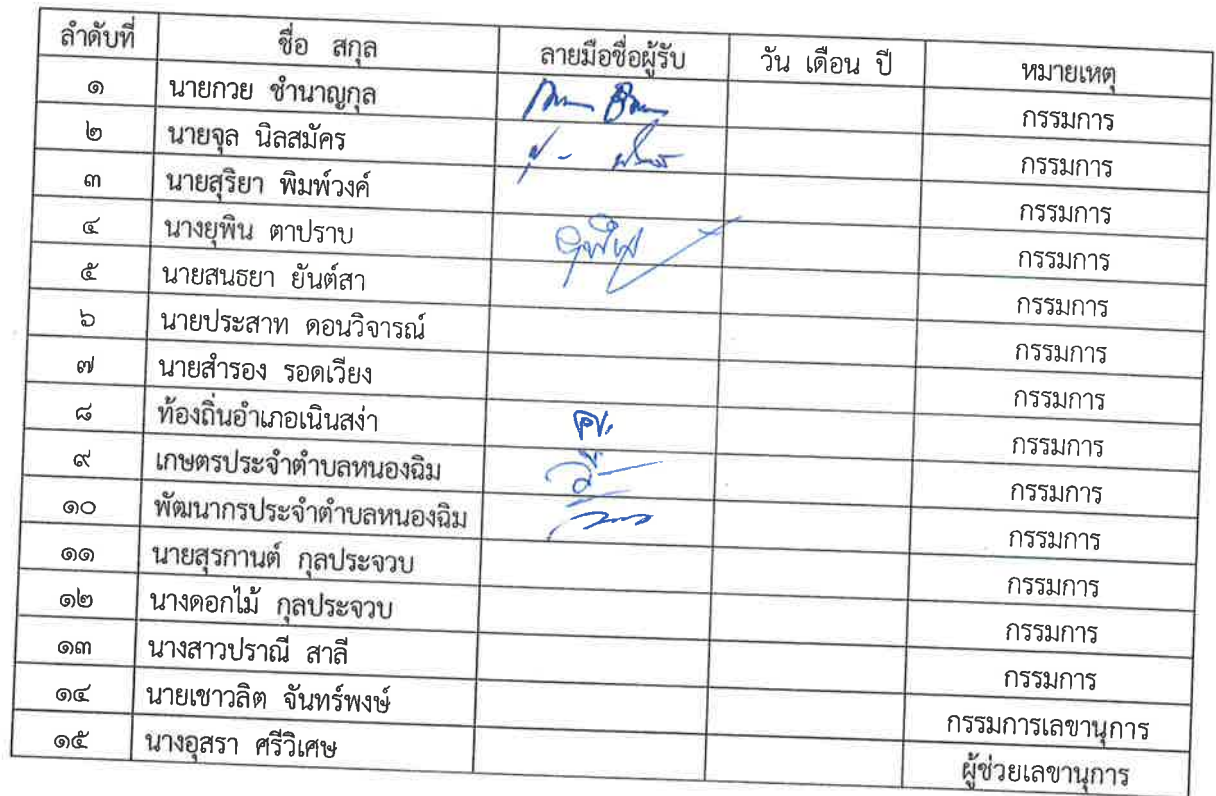 ลำดับที่ ชื่อ สกุล ลายมือชื่อผู้รับ วัน เดือน ปี หมายเหตุ
๑ นายกวย ชำนาญกุล กรรมการ
๒ นายจุล นิลสมัคร กรรมการ
๓ นายสุริยา พิมพ์วงค์ กรรมการ
๔ นางยุพิน ตาปราบ ยุพิน กรรมการ
๕ นายสนธยา ยันต์สา กรรมการ
๖ นายประสาท ดอนวิจารณ์ กรรมการ
๗ นายสำรอง รอดเวียง กรรมการ
๘ ท้องถิ่นอำเภอเนินสง่า กรรมการ
๙ เกษตรประจำตำบลหนองฉิม กรรมการ
๑๐ พัฒนากรประจำตำบลหนองฉิม กรรมการ
๑๑ นายสุรกานต์ กุลประจวบ กรรมการ
๑๒ นางดอกไม้ กุลประจวบ กรรมการ
๑๓ นางสาวปราณี สาลี กรรมการ
๑๔ นายเชาวลิต จันทร์พงษ์ กรรมการเลขานุการ
๑๕ นางอุสรา ศรีวิเศษ ผู้ช่วยเลขานุการ